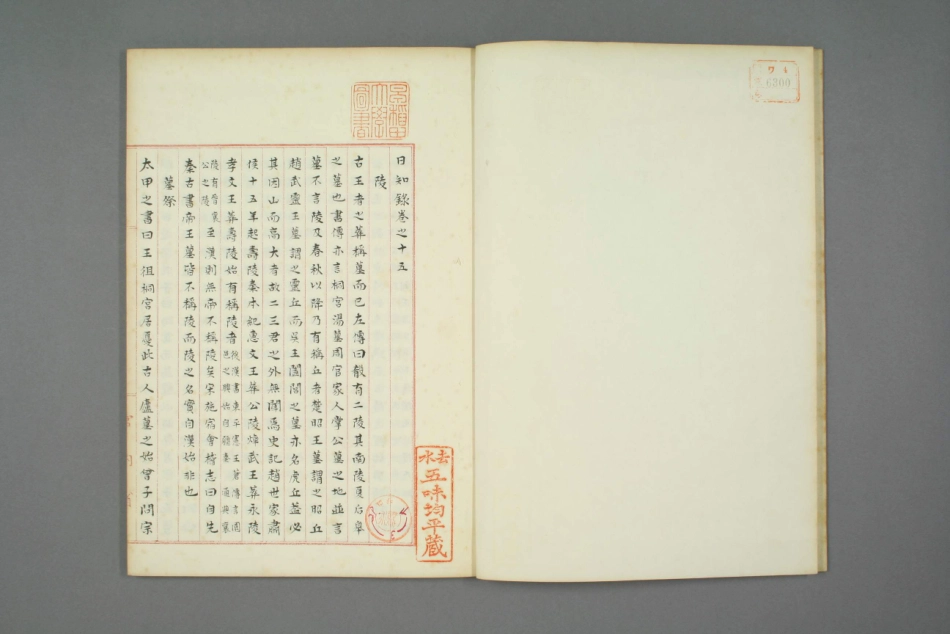 日知錄卷之十五
陵
古王者之葬稱墓而已左傳曰殽有二陵其南陵夏后皐
之墓也書傳亦言桐宮湯墓周官冢人掌公墓之地並言
墓不言陵及春秋以降乃有稱丘者楚昭王墓謂之昭丘
趙武靈王墓謂之靈丘而吳王闔閭之墓亦名虎丘蓋必
其因山而高大者故二三君之外無聞焉史記趙世家肅
侯十五年起壽陵秦本紀惠文王葬公陵悼武王葬永陵
孝文王葬壽陵始有稱陵者後漢書東平憲王蒼傳言園邑之興始自彊秦
陵有晉襄公之陵至漢則無帝不稱陵矣宋施宿會稽志曰自先
秦古書帝王墓皆不稱陵而陵之名實自漢始非也
墓祭
太甲之書曰王徂桐宮居憂此古人廬墓之始曾子問宗
早稻田大學圖書
去水
五味均平藏
6300